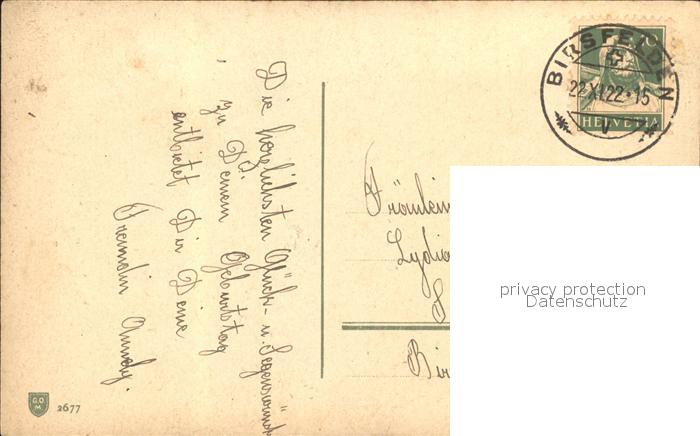 Die herzlichsten Glück- u. Segenswünsche
zu Deinem Geburtstag
entbietet Dir Deine
Freundin Annely.
BIRSFELDEN
22.XI.22-15
V
10
HELVETIA
Fräulein
Lydia
S
Bir
privacy protection
Datenschutz
G.O.
M.
2677